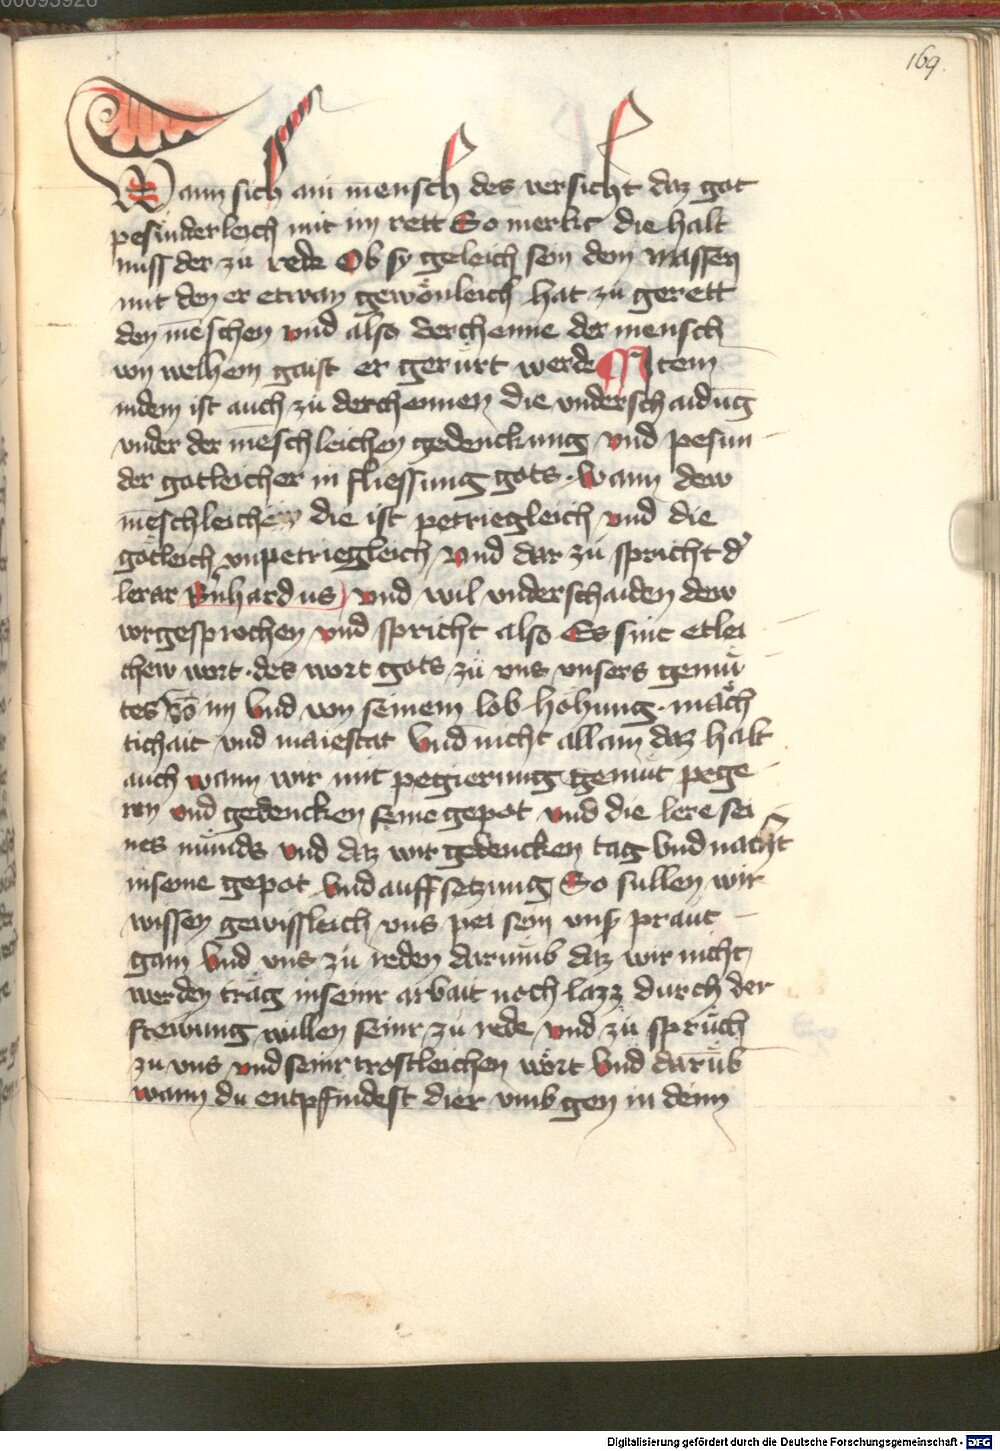 169.
Wann sich ain mensch des versicht daz got
pesünderleich mit im rett So merkt die halt
nuss der zu rede Ob sy geleich sein dem massen
mit den er etwan gewönleich hat zu gerett
den meschen vnd also derchenne der mensch
von welhem gaist er gerürt werde Item
indem ist auch zu derchennen die vnderschaidūg
vnder der meschleichen gedenckung vnd pesun
der gotleicher in fliessung gots · wann dew
meschleichen die ist petriegleich vnd die
gotleich vnpetriegleich vnd dar zu spricht d'
lerar Bnhardus vnd wil vnderschaiden dew
vorgesprochen vnd spricht also Es sint etlei
chew wort · des wort gots zu vns vnsers gemü
tes Vō im vnd von seinem lob höhung · mäch
tichait vnd maiestat vnd nicht allain daz halt
auch wann wir mit pegierung gemüt pege
ren vnd gedencken seine gepot vnd die lere sei
nes münds vnd daz wir gedencken tag vnd nacht
in seine gepot vnd auffsetzung So sullen wir
wissen gewissleich vns pei sein vnser praut
gam vnd vns zu reden darumb daz wir nicht
werden träg in seinr arbait noch lazz durch der
frewung willen seinr zu rede vnd zu sprüch
zu vns vnd seinr trostleichen wort vnd darüb
wann du entpfindest dier vmb gen in deim
00093926
Digitalisierung gefördert durch die Deutsche Forschungsgemeinschaft - DFG